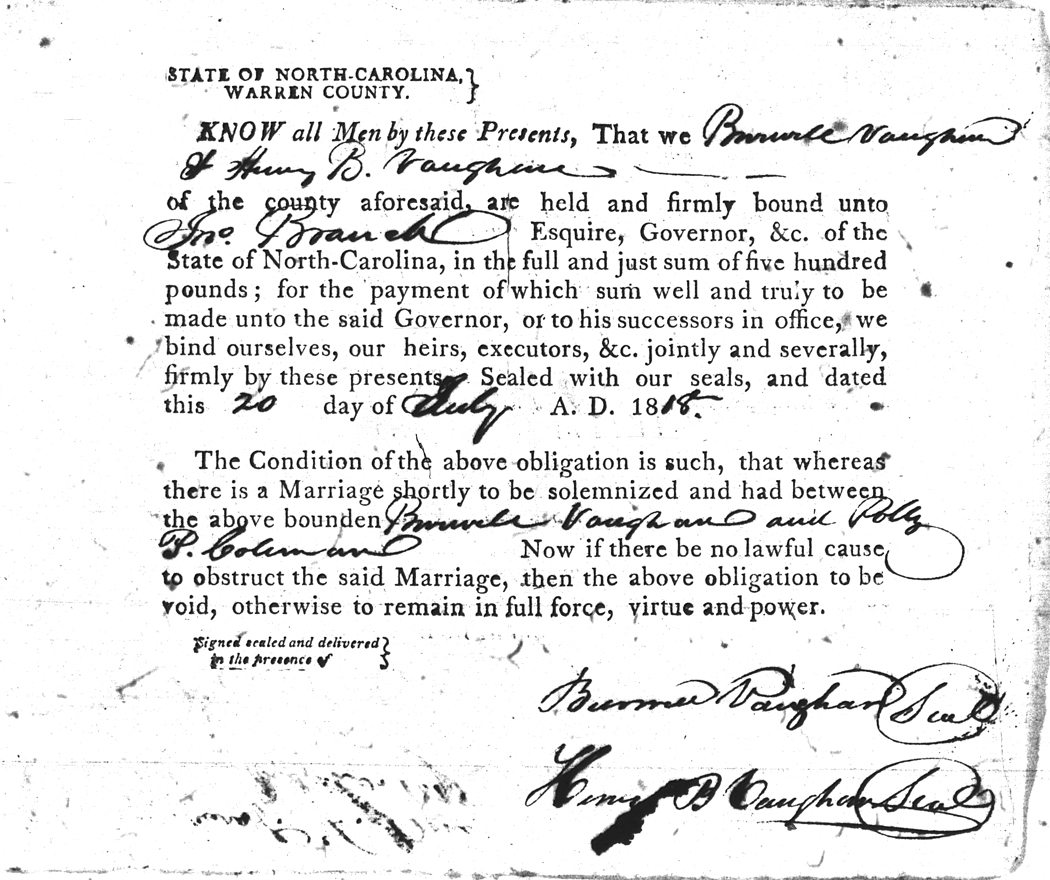 STATE OF NORTH-CAROLINA,
WARREN COUNTY.
KNOW all Men by these Presents, That we Burwell Vaughan
& Henry B. Vaughan
of the county aforesaid, are held and firmly bound unto
Jno. Branch Esquire, Governor, &c. of the
State of North-Carolina, in the full and just sum of five hundred
pounds; for the payment of which sum well and truly to be
made unto the said Governor, or to his successors in office, we
bind ourselves, our heirs, executors, &c. jointly and severally,
firmly by these presents. Sealed with our seals, and dated
this 20 day of July A. D. 1818.
The Condition of the above obligation is such, that whereas
there is a Marriage shortly to be solemnized and had between
the above bounden Burwell Vaughan and Polly
P. Coleman Now if there be no lawful cause
to obstruct the said Marriage, then the above obligation to be
void, otherwise to remain in full force, virtue and power.
Signed sealed and delivered
in the presence of
Burwell Vaughan Seal
Henry B Vaughan Seal